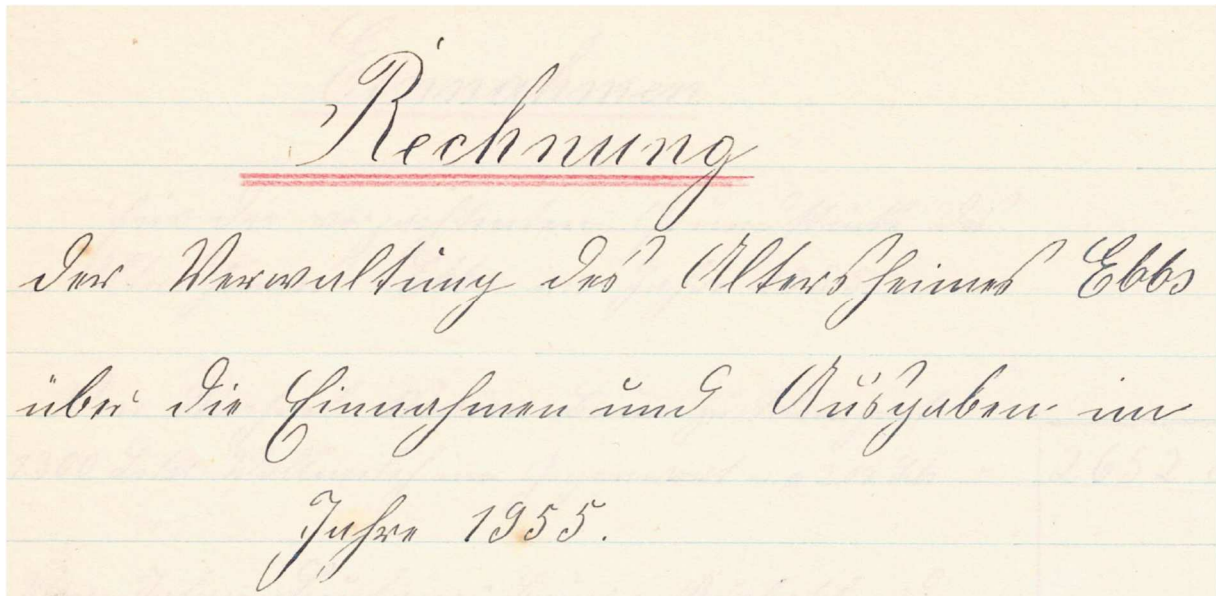 Rechnung
der Verwaltung des Altersheimes Ebbs
über die Einnahmen und Ausgaben im
Jahre 1955.